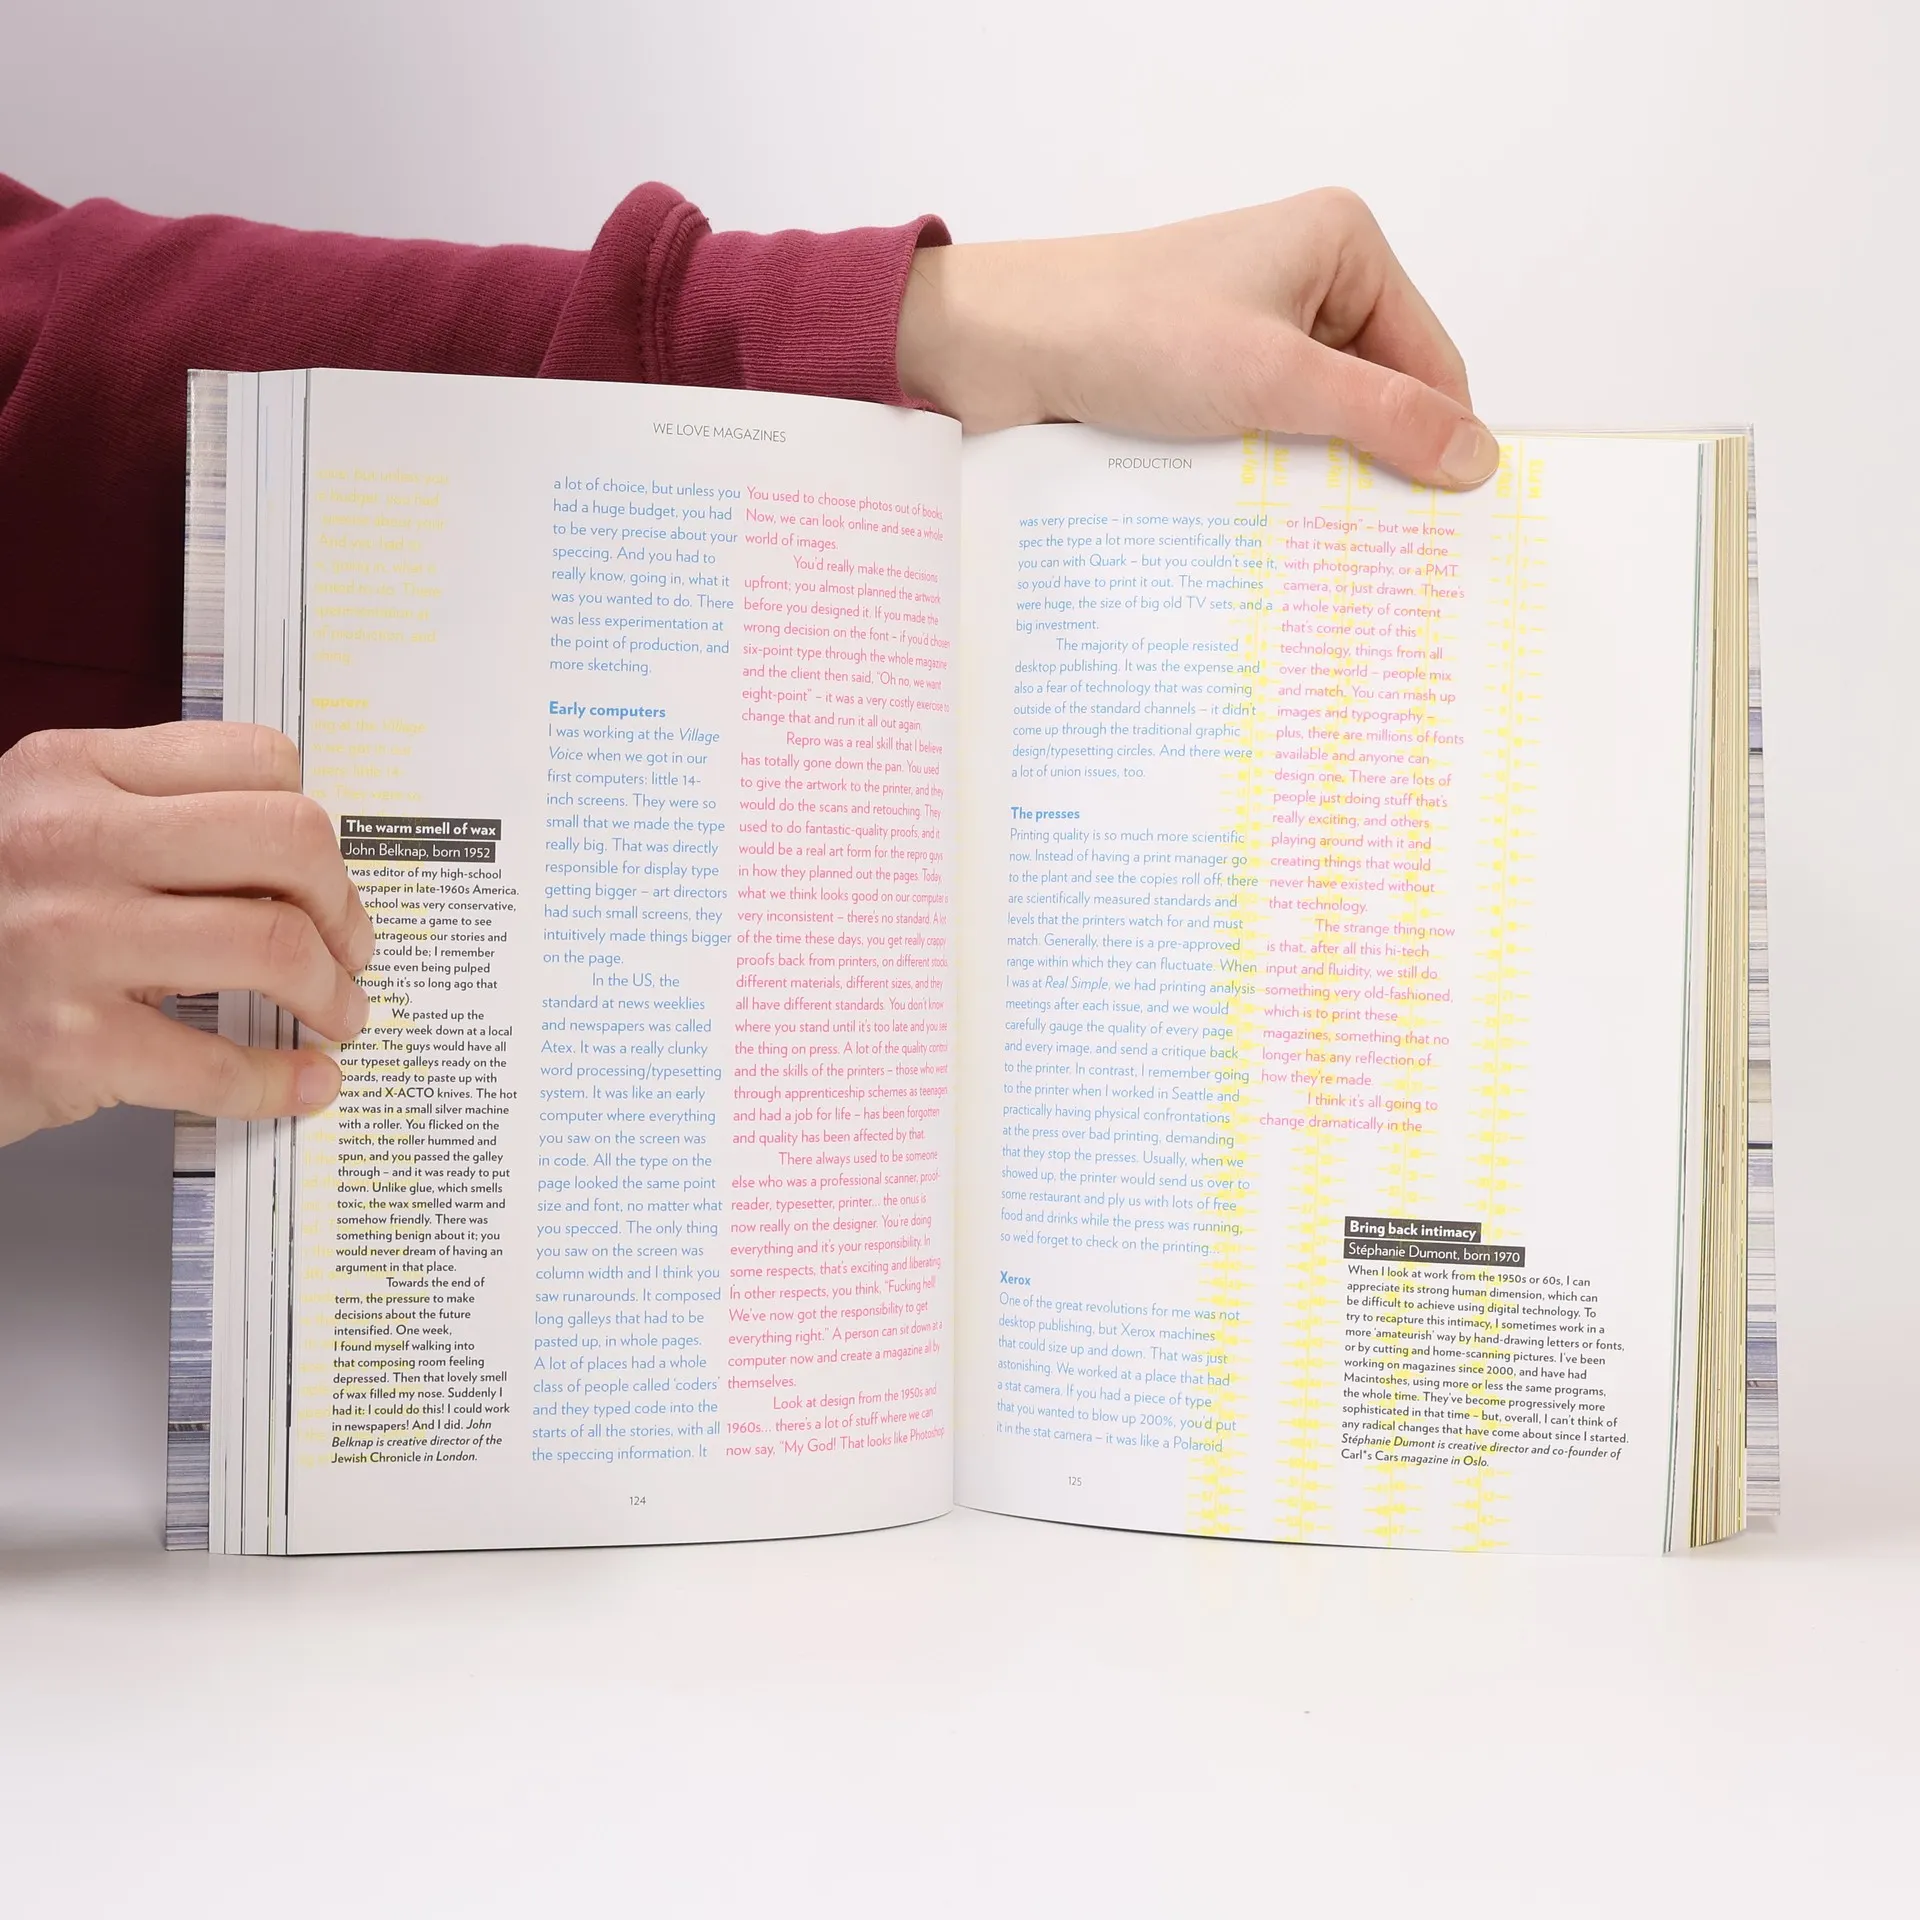 WE LOVE MAGAZINES
The warm smell of wax
John Belknap, born 1952
was editor of my high-school
in late-1960s America.
school was very conservative,
became a game to see
our stories and
could be; I remember
issue even being pulped
it's so long ago that
why).
We pasted up the
every week down at a local
printer. The guys would have all
our typeset galleys ready on the
boards, ready to paste up with
wax and X-ACTO knives. The hot
wax was in a small silver machine
with a roller. You flicked on the
switch, the roller hummed and
spun, and you passed the galley
through – and it was ready to put
down. Unlike glue, which smells
toxic, the wax smelled warm and
somehow friendly. There was
something benign about it; you
would never dream of having an
argument in that place.
Towards the end of
term, the pressure to make
decisions about the future
intensified. One week,
I found myself walking into
that composing room feeling
depressed. Then that lovely smell
of wax filled my nose. Suddenly I
had it: I could do this! I could work
in newspapers! And I did. John
Belknap is creative director of the
Jewish Chronicle in London.
a lot of choice, but unless you
had a huge budget, you had
to be very precise about your
speccing. And you had to
really know, going in, what it
was you wanted to do. There
was less experimentation at
the point of production, and
more sketching.
Early computers
I was working at the Village
Voice when we got in our
first computers: little 14-
inch screens. They were so
small that we made the type
really big. That was directly
responsible for display type
getting bigger – art directors
had such small screens, they
intuitively made things bigger
on the page.
In the US, the
standard at news weeklies
and newspapers was called
Atex. It was a really clunky
word processing/typesetting
system. It was like an early
computer where everything
you saw on the screen was
in code. All the type on the
page looked the same point
size and font, no matter what
you specced. The only thing
you saw on the screen was
column width and I think you
saw runarounds. It composed
long galleys that had to be
pasted up, in whole pages.
A lot of places had a whole
class of people called 'coders'
and they typed code into the
starts of all the stories, with all
the speccing information. It
You used to choose photos out of books.
Now, we can look online and see a whole
world of images.
You'd really make the decisions
upfront; you almost planned the artwork
before you designed it. If you made the
wrong decision on the font – if you'd chosen
six-point type through the whole magazine
and the client then said, "Oh no, we want
eight-point" – it was a very costly exercise to
change that and run it all out again.
Repro was a real skill that I believe
has totally gone down the pan. You used
to give the artwork to the printer, and they
would do the scans and retouching. They
used to do fantastic-quality proofs, and it
would be a real art form for the repro guys
in how they planned out the pages. Today,
what we think looks good on our computer is
very inconsistent – there's no standard. A lot
of the time these days, you get really crappy
proofs back from printers, on different stocks,
different materials, different sizes, and they
all have different standards. You don't know
where you stand until it's too late and you see
the thing on press. A lot of the quality control
and the skills of the printers – those who went
through apprenticeship schemes as teenagers
and had a job for life – has been forgotten
and quality has been affected by that.
There always used to be someone
else who was a professional scanner, proof-
reader, typesetter, printer... the onus is
now really on the designer. You're doing
everything and it's your responsibility. In
some respects, that's exciting and liberating.
In other respects, you think, "Fucking hell!
We've now got the responsibility to get
everything right." A person can sit down at a
computer now and create a magazine all by
themselves.
Look at design from the 1950s and
1960s... there's a lot of stuff where we can
now say, "My God! That looks like Photoshop
124
PRODUCTION
was very precise – in some ways, you could
spec the type a lot more scientifically than
you can with Quark – but you couldn't see it,
so you'd have to print it out. The machines
were huge, the size of big old TV sets, and a
big investment.
The majority of people resisted
desktop publishing. It was the expense and
also a fear of technology that was coming
outside of the standard channels – it didn't
come up through the traditional graphic
design/typesetting circles. And there were
a lot of union issues, too.
The presses
Printing quality is so much more scientific
now. Instead of having a print manager go
to the plant and see the copies roll off, there
are scientifically measured standards and
levels that the printers watch for and must
match. Generally, there is a pre-approved
range within which they can fluctuate. When
I was at Real Simple, we had printing analysis
meetings after each issue, and we would
carefully gauge the quality of every page
and every image, and send a critique back
to the printer. In contrast, I remember going
to the printer when I worked in Seattle and
practically having physical confrontations
at the press over bad printing, demanding
that they stop the presses. Usually, when we
showed up, the printer would send us over to
some restaurant and ply us with lots of free
food and drinks while the press was running,
so we'd forget to check on the printing...
Xerox
One of the great revolutions for me was not
desktop publishing, but Xerox machines
that could size up and down. That was just
astonishing. We worked at a place that had
a stat camera. If you had a piece of type
that you wanted to blow up 200%, you'd put
it in the stat camera – it was like a Polaroid
or InDesign" – but we know
that it was actually all done
with photography, or a PMT
camera, or just drawn. There's
a whole variety of content
that's come out of this
technology, things from all
over the world – people mix
and match. You can mash up
images and typography –
plus, there are millions of fonts
available and anyone can
design one. There are lots of
people just doing stuff that's
really exciting, and others
playing around with it and
creating things that would
never have existed without
that technology.
The strange thing now
is that, after all this hi-tech
input and fluidity, we still do
something very old-fashioned,
which is to print these
magazines, something that no
longer has any reflection of
how they're made.
I think it's all going to
change dramatically in the
Bring back intimacy
Stéphanie Dumont, born 1970
When I look at work from the 1950s or 60s, I can
appreciate its strong human dimension, which can
be difficult to achieve using digital technology. To
try to recapture this intimacy, I sometimes work in a
more 'amateurish' way by hand-drawing letters or fonts,
or by cutting and home-scanning pictures. I've been
working on magazines since 2000, and have had
Macintoshes, using more or less the same programs,
the whole time. They've become progressively more
sophisticated in that time – but, overall, I can't think of
any radical changes that have come about since I started.
Stéphanie Dumont is creative director and co-founder of
Carl*s Cars magazine in Oslo.
125